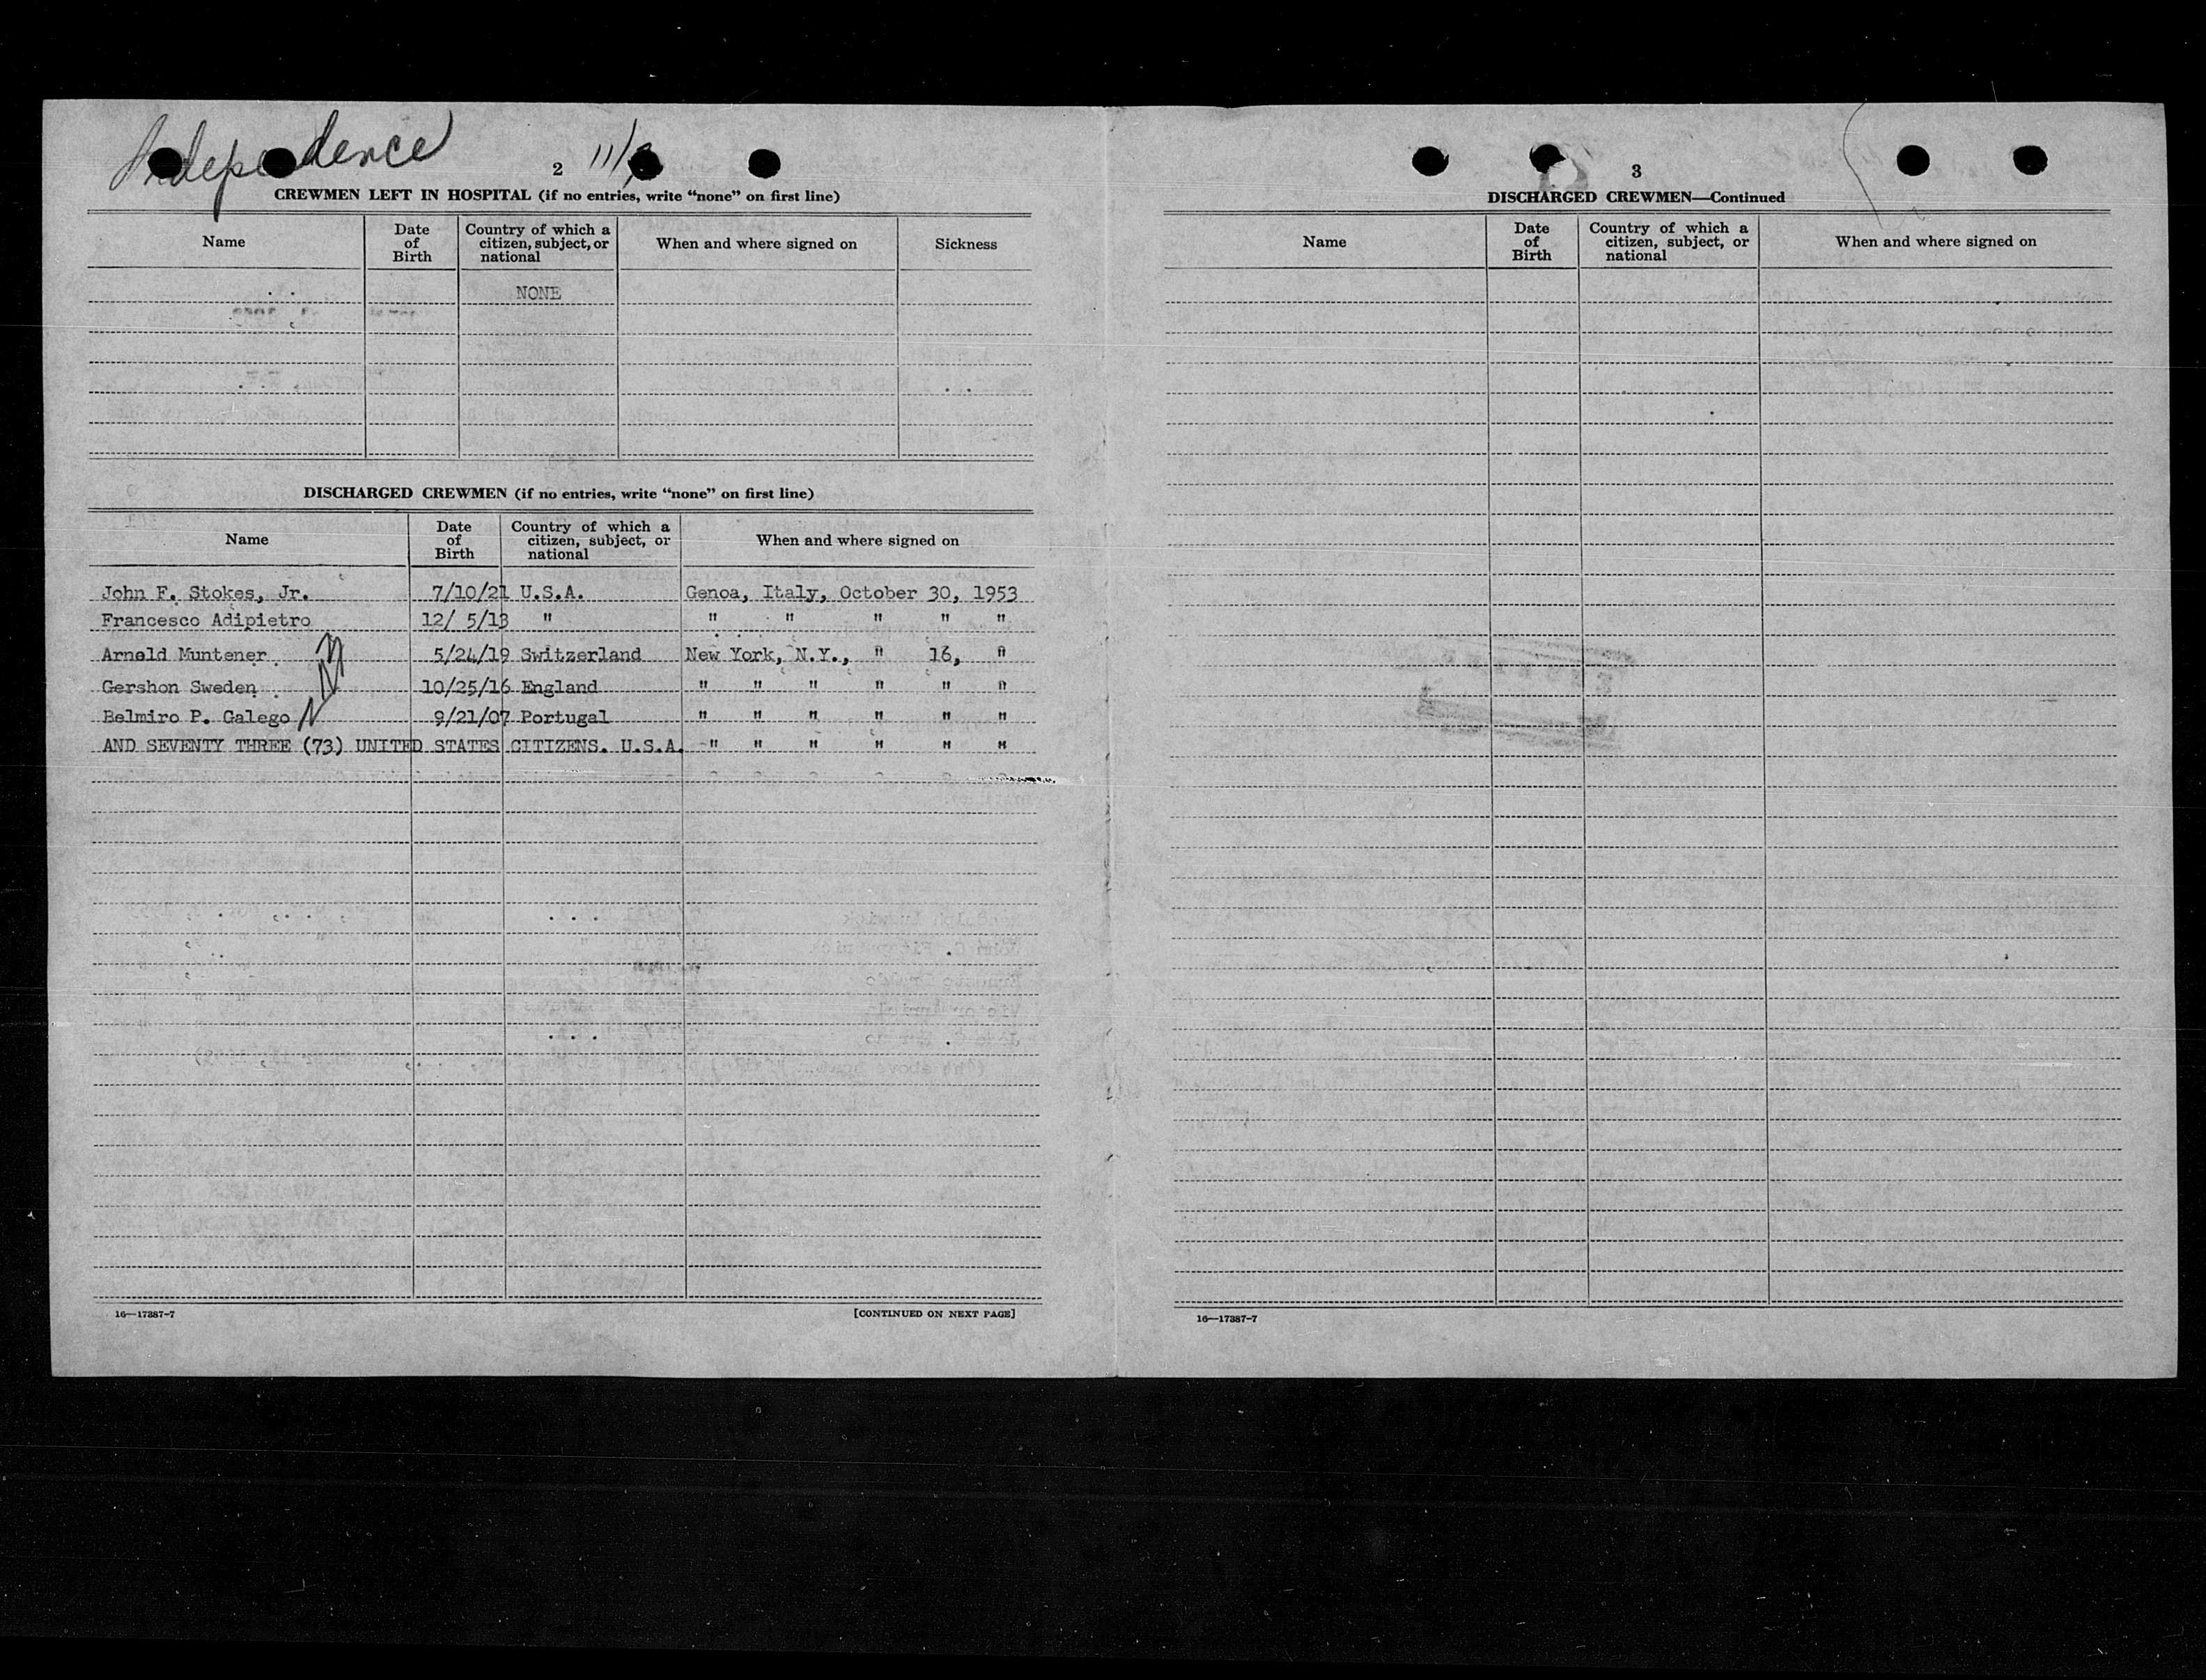 Independence
2 11/
CREWMEN LEFT IN HOSPITAL (if no entries, write “none” on first line)
Name Date of Birth Country of which a citizen, subject, or national When and where signed on Sickness
NONE
DISCHARGED CREWMEN (if no entries, write “none” on first line)
Name Date of Birth Country of which a citizen, subject, or national When and where signed on
John F. Stokes, Jr. 7/10/21 U.S.A. Genoa, Italy, October 30, 1953
Francesco Adipietro 12/ 5/13 " " " " " "
Arnold Muntener N 5/24/19 Switzerland New York, N.Y., " 16, "
Gershon Sweden N 10/25/16 England " " " " " "
Belmiro P. Galego N 9/21/07 Portugal " " " " " "
AND SEVENTY THREE (73) UNITED STATES CITIZENS. U.S.A. " " " " " "
16—17387-7 [CONTINUED ON NEXT PAGE]
3
DISCHARGED CREWMEN—Continued
Name Date of Birth Country of which a citizen, subject, or national When and where signed on
16—17387-7